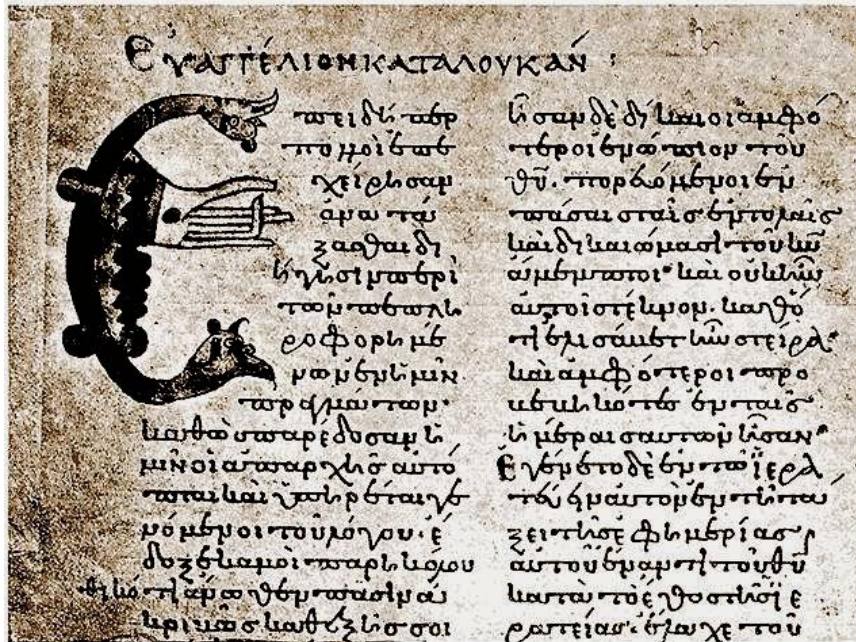 Εὐαγγέλιον κατὰ Λουκάν :
Ἐπειδήπερ
πολλοὶ ἐπε
χείρησαν
ἀνατά
ξασθαι δι
ήγησιν περὶ
τῶν πεπλη
ροφορημέ
νων ἐν ἡμῖν
πραγμάτων·
καθὼς παρέδοσαν ἡ
μῖν οἱ ἀπαρχῆς αὐτό
πται καὶ ὑπηρέται γε
νόμενοι τοῦ λόγου· ἔ
δοξε κἀμοὶ παρηκολου
θηκότι ἄνωθεν πᾶσιν ἀ
κριβῶς καθεξῆς σοι
ἦσαν δὲ δίκαιοι ἀμφό
τεροι ἐνώπιον τοῦ
θ̅υ̅· πορευόμενοι ἐν
πάσαις ταῖς ἐντολαῖς
καὶ δικαιώμασι τοῦ κ̅υ̅
ἄμεμπτοι· καὶ οὐκ ἦν
αὐτοῖς τέκνον· καθό
τι ἡ ἐλισάβετ ἦν στεῖρα·
καὶ ἀμφότεροι προ
βεβηκότες ἐν ταῖς
ἡμέραις αὐτῶν ἦσαν·
Ἐγένετο δὲ ἐν τῷ ἱερα
τεύειν αὐτὸν ἐν τῇ τά
ξει τῆς ἐφημερίας
αὐτοῦ ἔναντι τοῦ θ̅υ̅
κατὰ τὸ ἔθος τῆς ἱε
ρατείας· ἔλαχε τοῦ